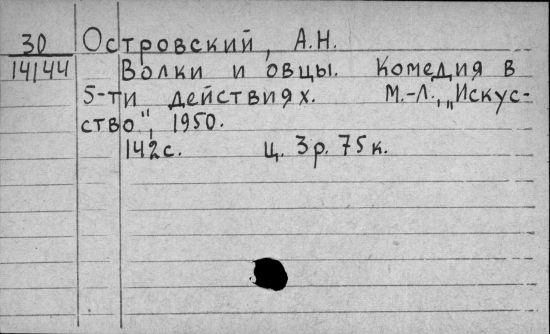 30 Островский, А.Н.
14144 Волки и овцы. Комедия в
5-ти действиях. М.-Л., „Искус-
ство", 1950.
142с. Ц. 3р. 75к.